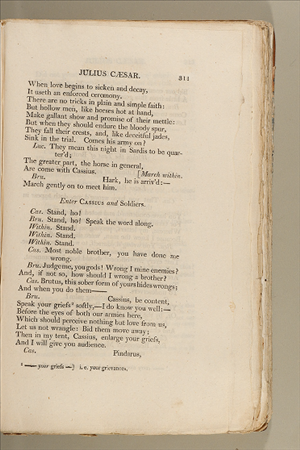 JULIUS CÆSAR. 311
When love begins to sicken and decay,
It useth an enforced ceremony.
There are no tricks in plain and simple faith:
But hollow men, like horses hot at hand,
Make gallant show and promise of their mettle:
But when they should endure the bloody spur,
They fall their crests, and, like deceitful jades,
Sink in the trial. Comes his army on?
Luc. They mean this night in Sardis to be quar-
ter'd;
The greater part, the horse in general,
Are come with Cassius. [March within.
Bru. Hark, he is arriv'd:—
March gently on to meet him.
Enter CASSIUS and Soldiers.
Cas. Stand, ho!
Bru. Stand, ho! Speak the word along.
Within. Stand.
Within. Stand.
Within. Stand.
Cas. Most noble brother, you have done me
wrong.
Bru. Judge me, you gods! Wrong I mine enemies?
And, if not so, how should I wrong a brother?
Cas. Brutus, this sober form of yours hides wrongs;
And when you do them——
Bru. Cassius, be content,
Speak your griefs* softly,—I do know you well:—
Before the eyes of both our armies here,
Which should perceive nothing but love from us,
Let us not wrangle: Bid them move away;
Then in my tent, Cassius, enlarge your griefs,
And I will give you audience.
Cas. Pindarus,
* —— your griefs —] i. e. your grievances.